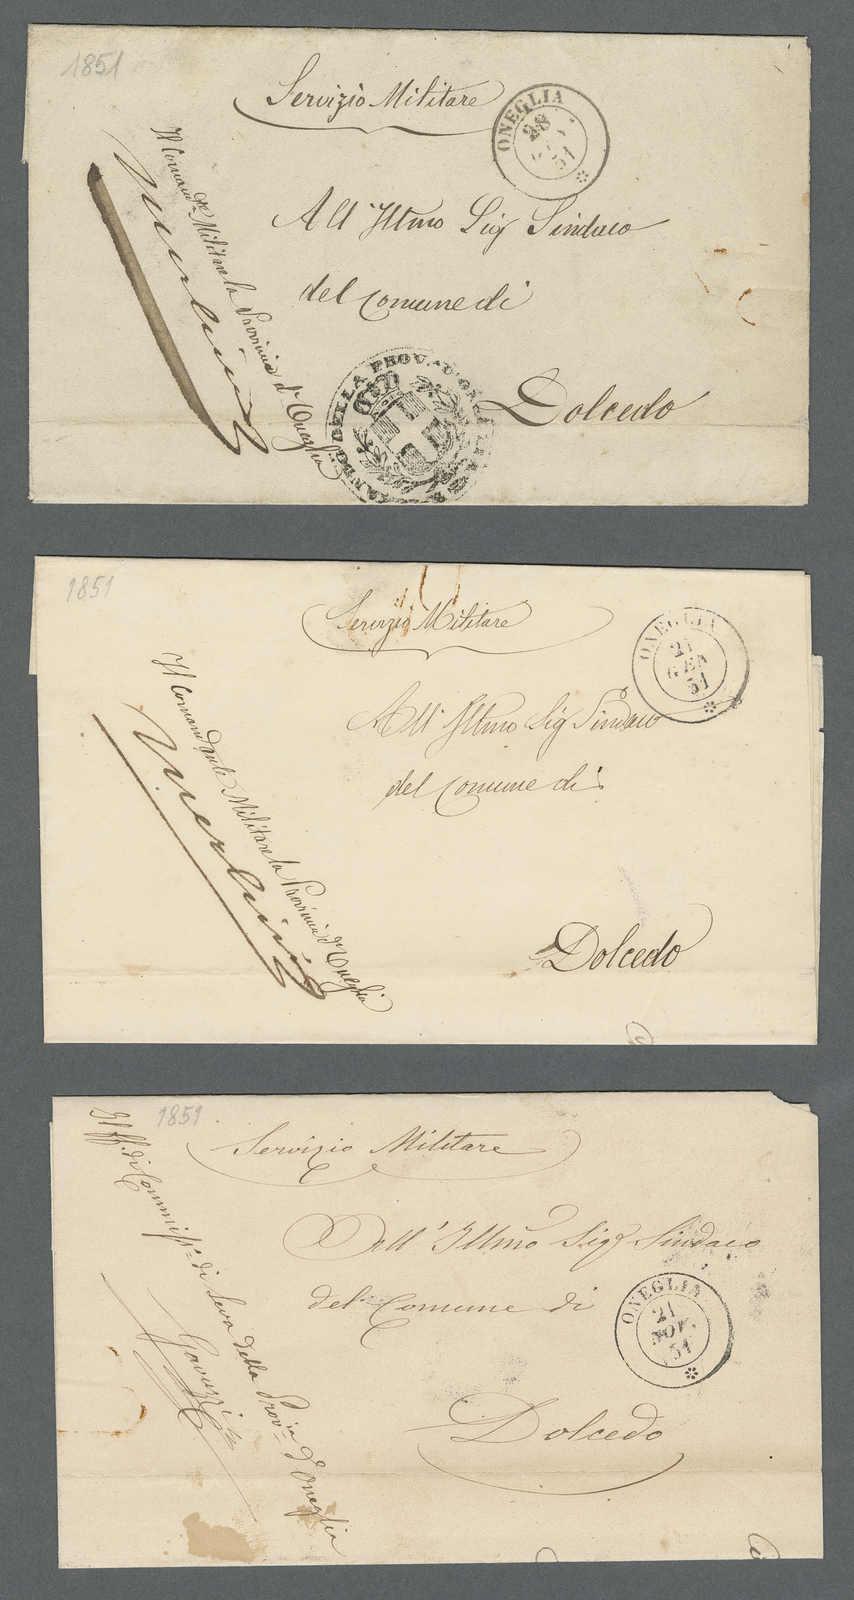 1851
Servizio Militare
ONEGLIA
28
51
Il Comand.te Militare la Provincia d'Oneglia
All' Illmo Sig Sindaco
del Comune di
Dolcedo
DELLA PROV.
1851
Servizio Militare
ONEGLIA
21
GEN
51
Il Comandante Militare la Provincia d'Oneglia
All' Illmo Sig Sindaco
del Comune di
Dolcedo
1851
Servizio Militare
Il ff. di Commiss.o di Leva della Prov.ia d'Oneglia
Dall' Illmo Sigr Sindaco
del Comune di
ONEGLIA
21
NOV.
51
Dolcedo